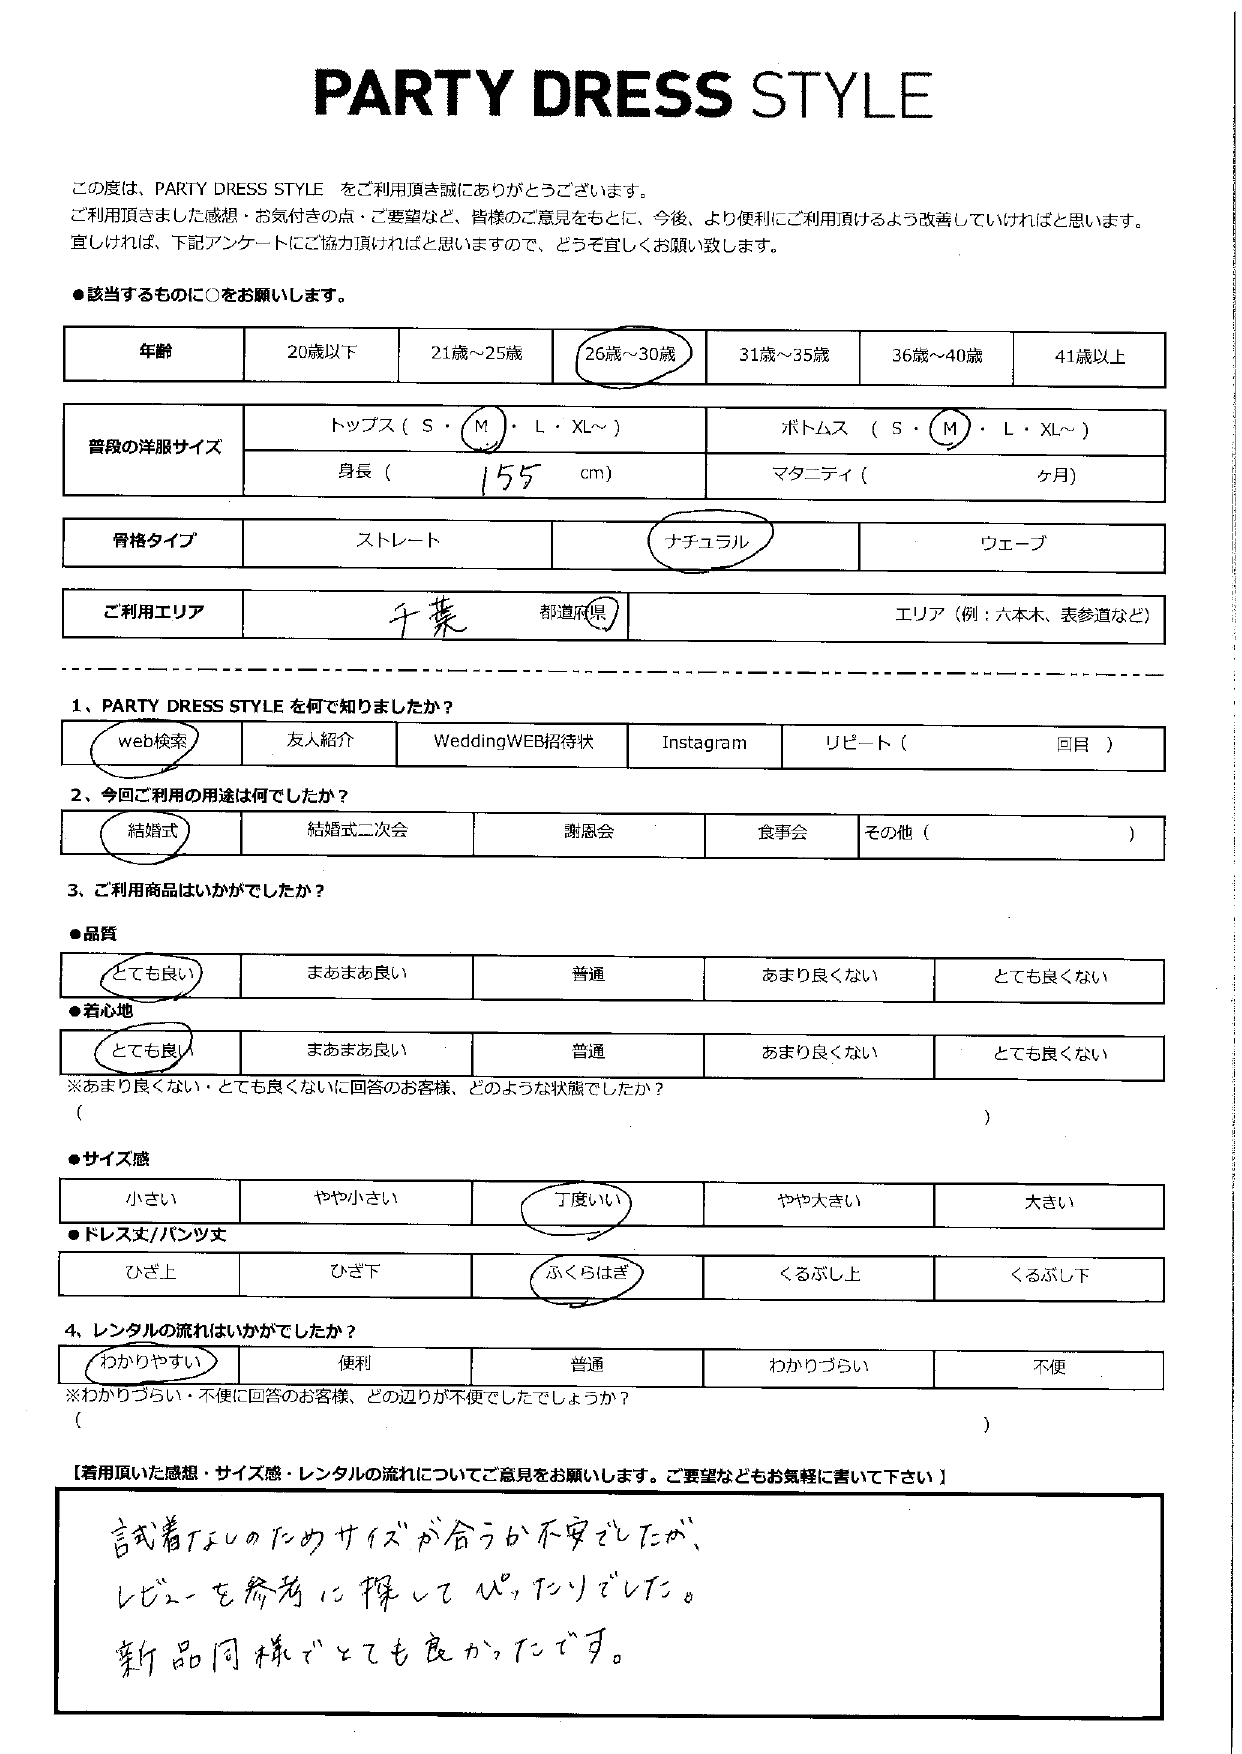 PARTY DRESS STYLE
この度は、PARTY DRESS STYLE をご利用頂き誠にありがとうございます。
ご利用頂きました感想・お気付きの点・ご要望など、皆様のご意見をもとに、今後、より便利にご利用頂けるよう改善していければと思います。
宜しければ、下記アンケートにご協力頂ければと思いますので、どうぞ宜しくお願い致します。
●該当するものに○をお願いします。
年齢 20歳以下 21歳～25歳 26歳～30歳 31歳～35歳 36歳～40歳 41歳以上
普段の洋服サイズ トップス ( S ・ M ・ L ・ XL～ ) ボトムス ( S ・ M ・ L ・ XL～ )
身長 ( 155 cm) マタニティ ( ヶ月)
骨格タイプ ストレート ナチュラル ウェーブ
ご利用エリア 千葉 都道府県 エリア（例：六本木、表参道など）
1、PARTY DRESS STYLE を何で知りましたか？
web検索 友人紹介 WeddingWEB招待状 Instagram リピート ( 回目 )
2、今回ご利用の用途は何でしたか？
結婚式 結婚式二次会 謝恩会 食事会 その他 ( )
3、ご利用商品はいかがでしたか？
●品質
とても良い まあまあ良い 普通 あまり良くない とても良くない
●着心地
とても良い まあまあ良い 普通 あまり良くない とても良くない
※あまり良くない・とても良くないに回答のお客様、どのような状態でしたか？
( )
●サイズ感
小さい やや小さい 丁度いい やや大きい 大きい
●ドレス丈/パンツ丈
ひざ上 ひざ下 ふくらはぎ くるぶし上 くるぶし下
4、レンタルの流れはいかがでしたか？
わかりやすい 便利 普通 わかりづらい 不便
※わかりづらい・不便に回答のお客様、どの辺りが不便でしたでしょうか？
( )
【着用頂いた感想・サイズ感・レンタルの流れについてご意見をお願いします。ご要望などもお気軽に書いて下さい 】
試着なしのためサイズが合うか不安でしたが、
レビューを参考に探してぴったりでした。
新品同様でとても良かったです。